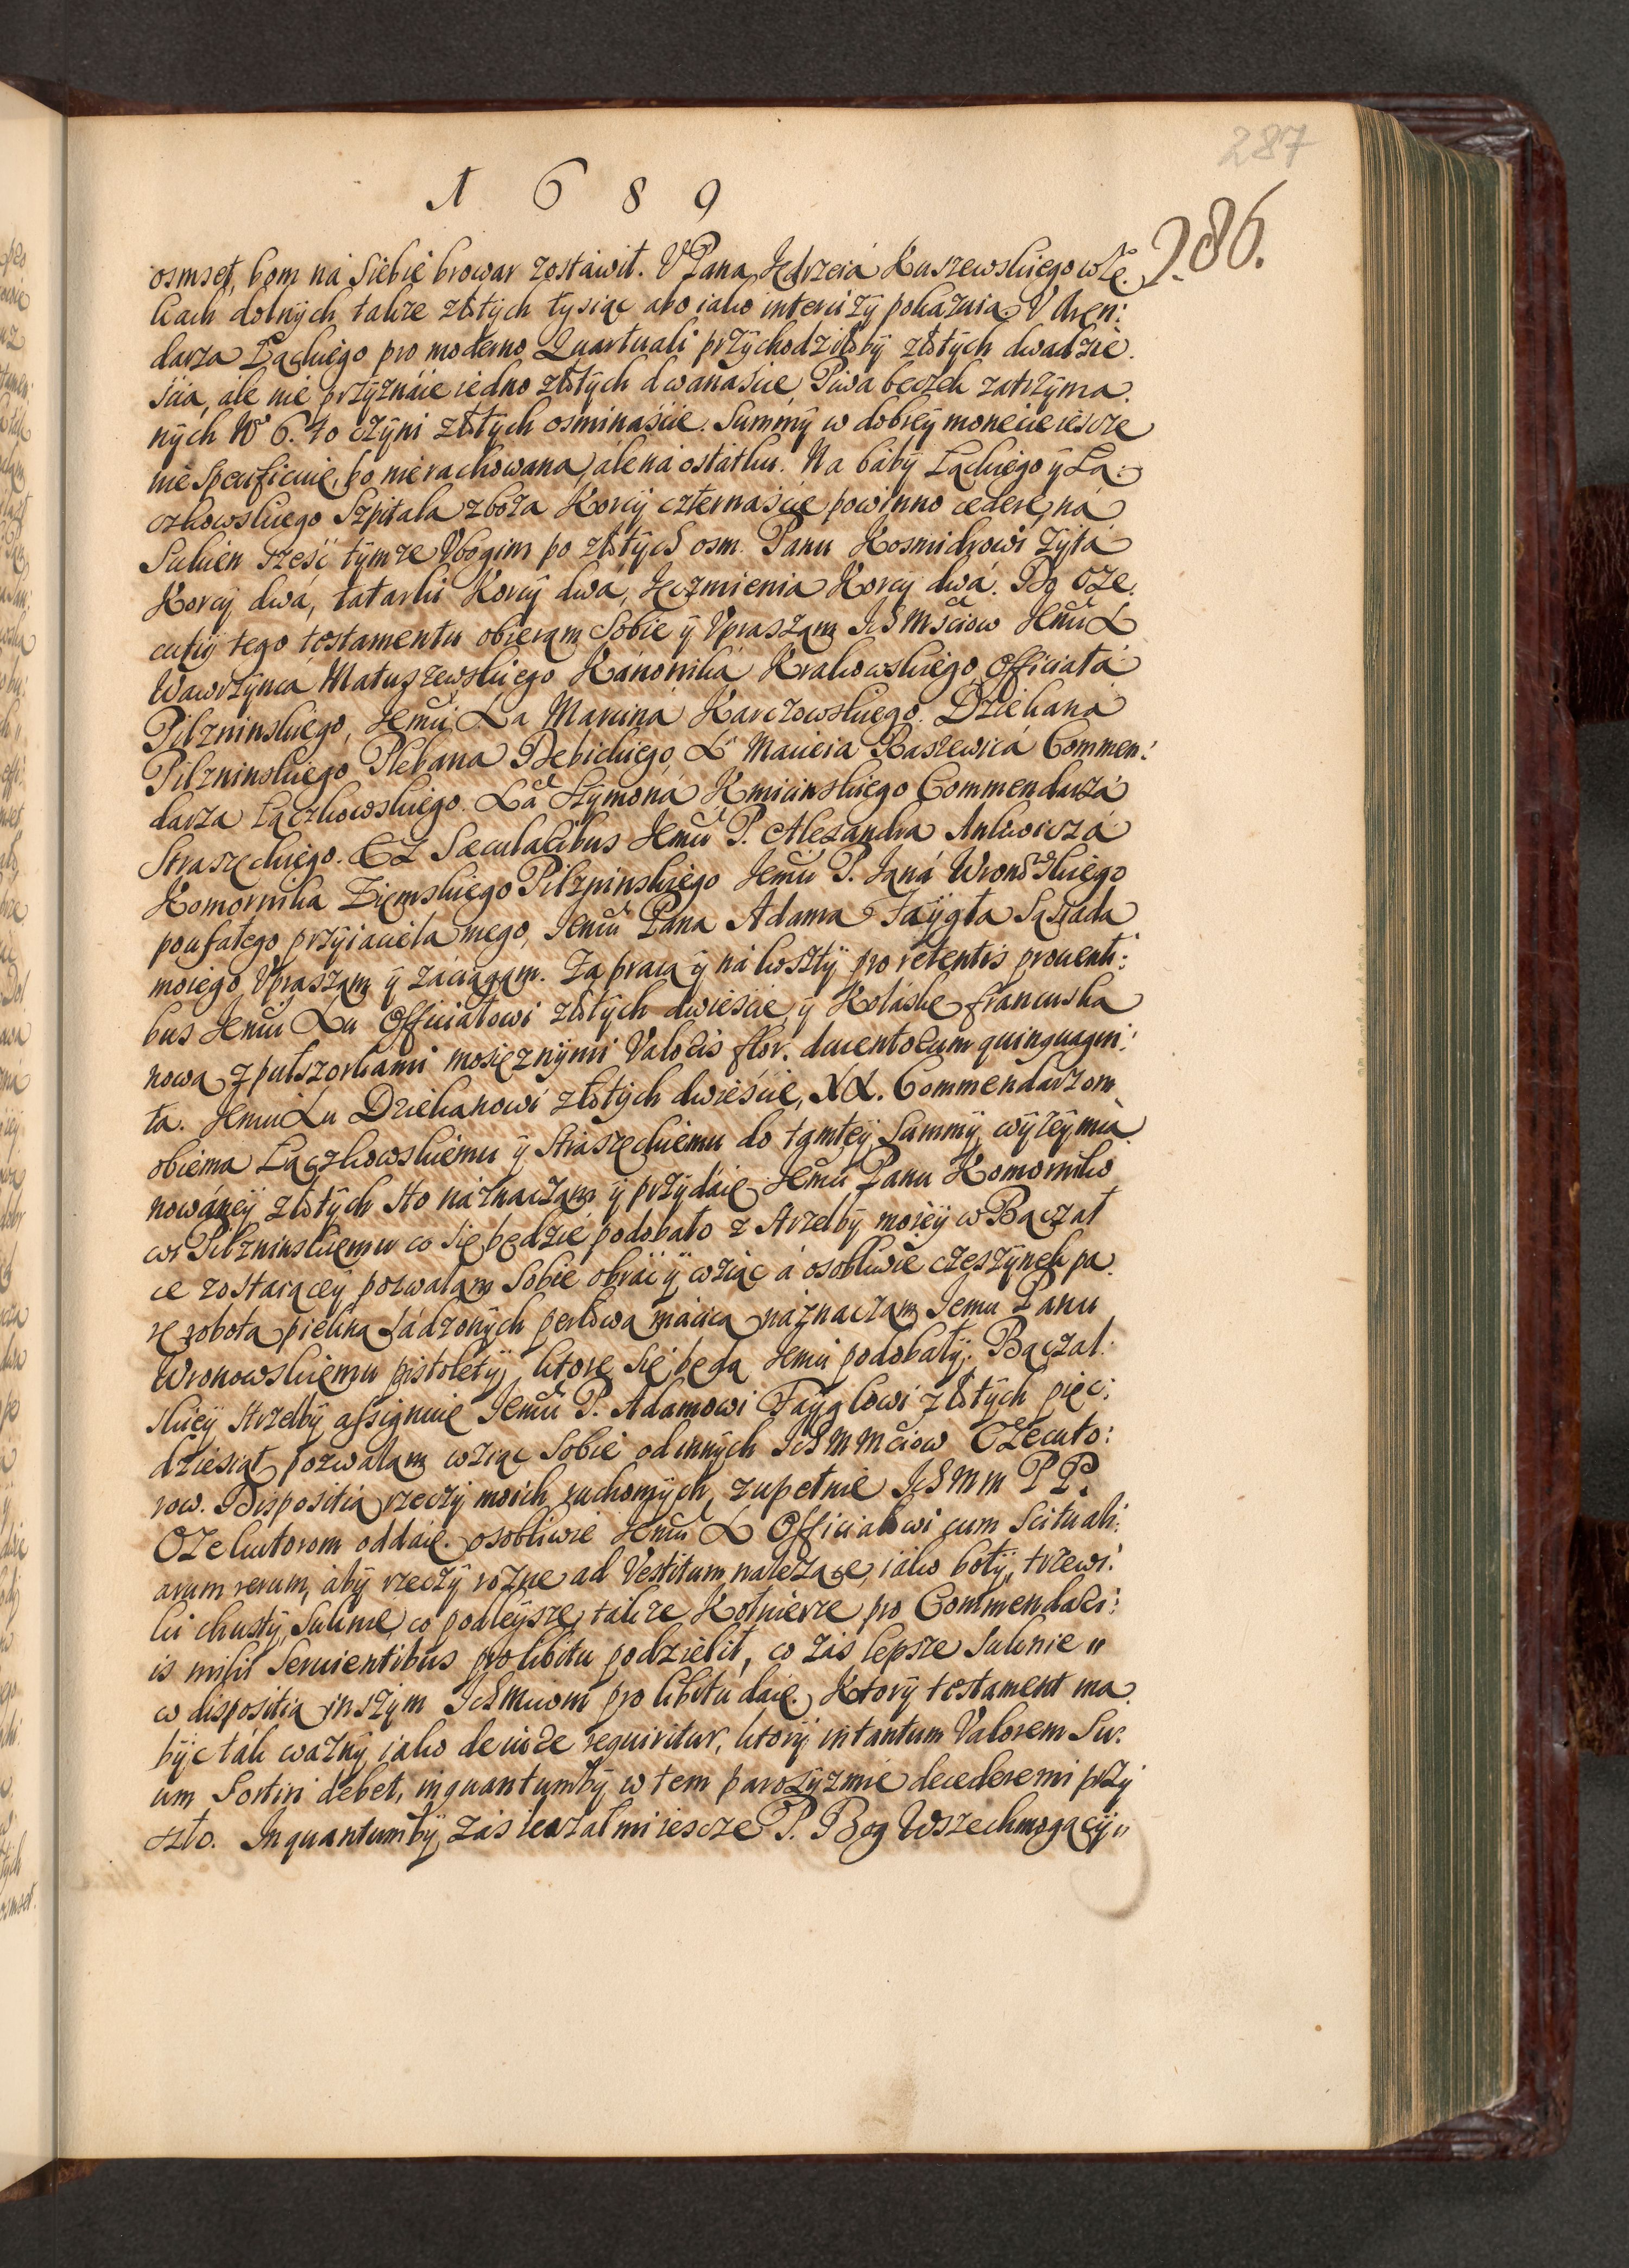 287
1689
286.
osmset, bom na Siebie browar zostawił. V Pana Jędrzeia Kuszewskiego w Łę.
kach dolnych takze złotych tysiąc abo iako intercizÿ pokaznią. V Aren:
darza Łąckiego pro moderno Quartuali przÿchodziłobÿ złotÿch dwadzie.
scia, ale nie przÿznaie iedno złotÿch dwanascie, Piwa beczek zatrzÿma.
nÿch N° 6. to czÿni złotÿch osminascie. Summÿ w dobreÿ monecie iescze
nie Specificuię, bo nierachowana, ale na ostatku. Na babÿ Łąckiego ÿ Łą:
czkowskiego Szpitala zboza Korcÿ czternascie powinno cedere, na
Sukien szesc tÿmze Vbogim po złotÿch osm. Panu Kosmidrowi zÿta
Korcÿ dwa, tatarki Korcÿ dwa, Jęczmienia Korcÿ dwa. Do Exe.
cutiÿ tego testamentu obieram Sobie ÿ Vpraszam IchMsciow Jemci X
Wawrzÿnca Matuszewskiego Kanonika Krakowskiego, Officiała
Pilzninskiego, Jemci Xa Marcina Karczowskiego Dziekana
Pilzninskiego Plebana Dębickiego, X Macieia Raszewica Commen:
darza Łączkowskiego. Xa Szÿmona Kmicinskiego Commendarza
Straszęckiego. Ex Sæcularibus Jemci P. Alexandra Ankwicza
Komornika Ziemskiego Pilzninskiego Jemci P. Jana Wronowskiego
poufałego przÿiaciela mego, Jemci Pana Adama Faÿgla Sąsiada
moiego Vpraszam ÿ zaciągam. Za pracą ÿ na kosztÿ pro retentis prouenti:
bus Jemci Xu Officiałowi złotÿch dwiescie, ÿ Kolaskę francuską
nową z pułszorkami mosięznÿmi Valoris flor. ducentorum quinquagin:
ta. Jemci Xu Dziekanowi złotÿch dwiescie, XX. Commendarzom
obiema Łączkowskiemu ÿ Straszęckiemu do tamteÿ Summÿ wÿzeÿ mia
nowaneÿ złotÿch sto naznaczam ÿ przÿdaię Jemci Panu Komorniko
wi Pilzninskiemu co się będzie podobało z strzelbÿ moieÿ w Bączał
ce zostaiąceÿ pozwalam Sobie obrac ÿ wziąc a osobliwie czeszÿnek pa.
rę robota piękna Sadzonÿch perłową macicą naznaczam Jemci Panu
Wronowskiemu pistoletÿ, ktore się będą Jemci podobałÿ. Bączal:
skieÿ strzelbÿ assignuię Jemci P. Adamowi Faÿglowi złotÿch pięc:
dziesiąt pozwalam wziąc Sobie od innÿch IchMMciow Executo:
row. Dispositią rzeczÿ moich ruchomÿch, zupełnie IchMM PP.
Exekutorom oddaię. osobliwie Jemci X Officiałowi cum Scitu ali:
arum rerum, abÿ rzeczÿ rozne ad Vestitum nalezące, iako botÿ, trzewi:
ki chustÿ, Suknie, co podleÿsze, takze Kołnierze pro Commendari:
is mihi Seruientibus pro libitu podzielił, co zas lepsze Suknie "
w dispositią inszÿm IchMciom pro libitu daię. Ktorÿ testament ma
bÿc tak waznÿ iako de iure requiritur, ktorÿ in tantum Valorem Su:
um Sortiri debet, inquantumbÿ w tem paroxÿzmie decedere mi przÿ
szło. Inquantumbÿ zas kazal mi iescze P. Bog Wszechmogącÿ "